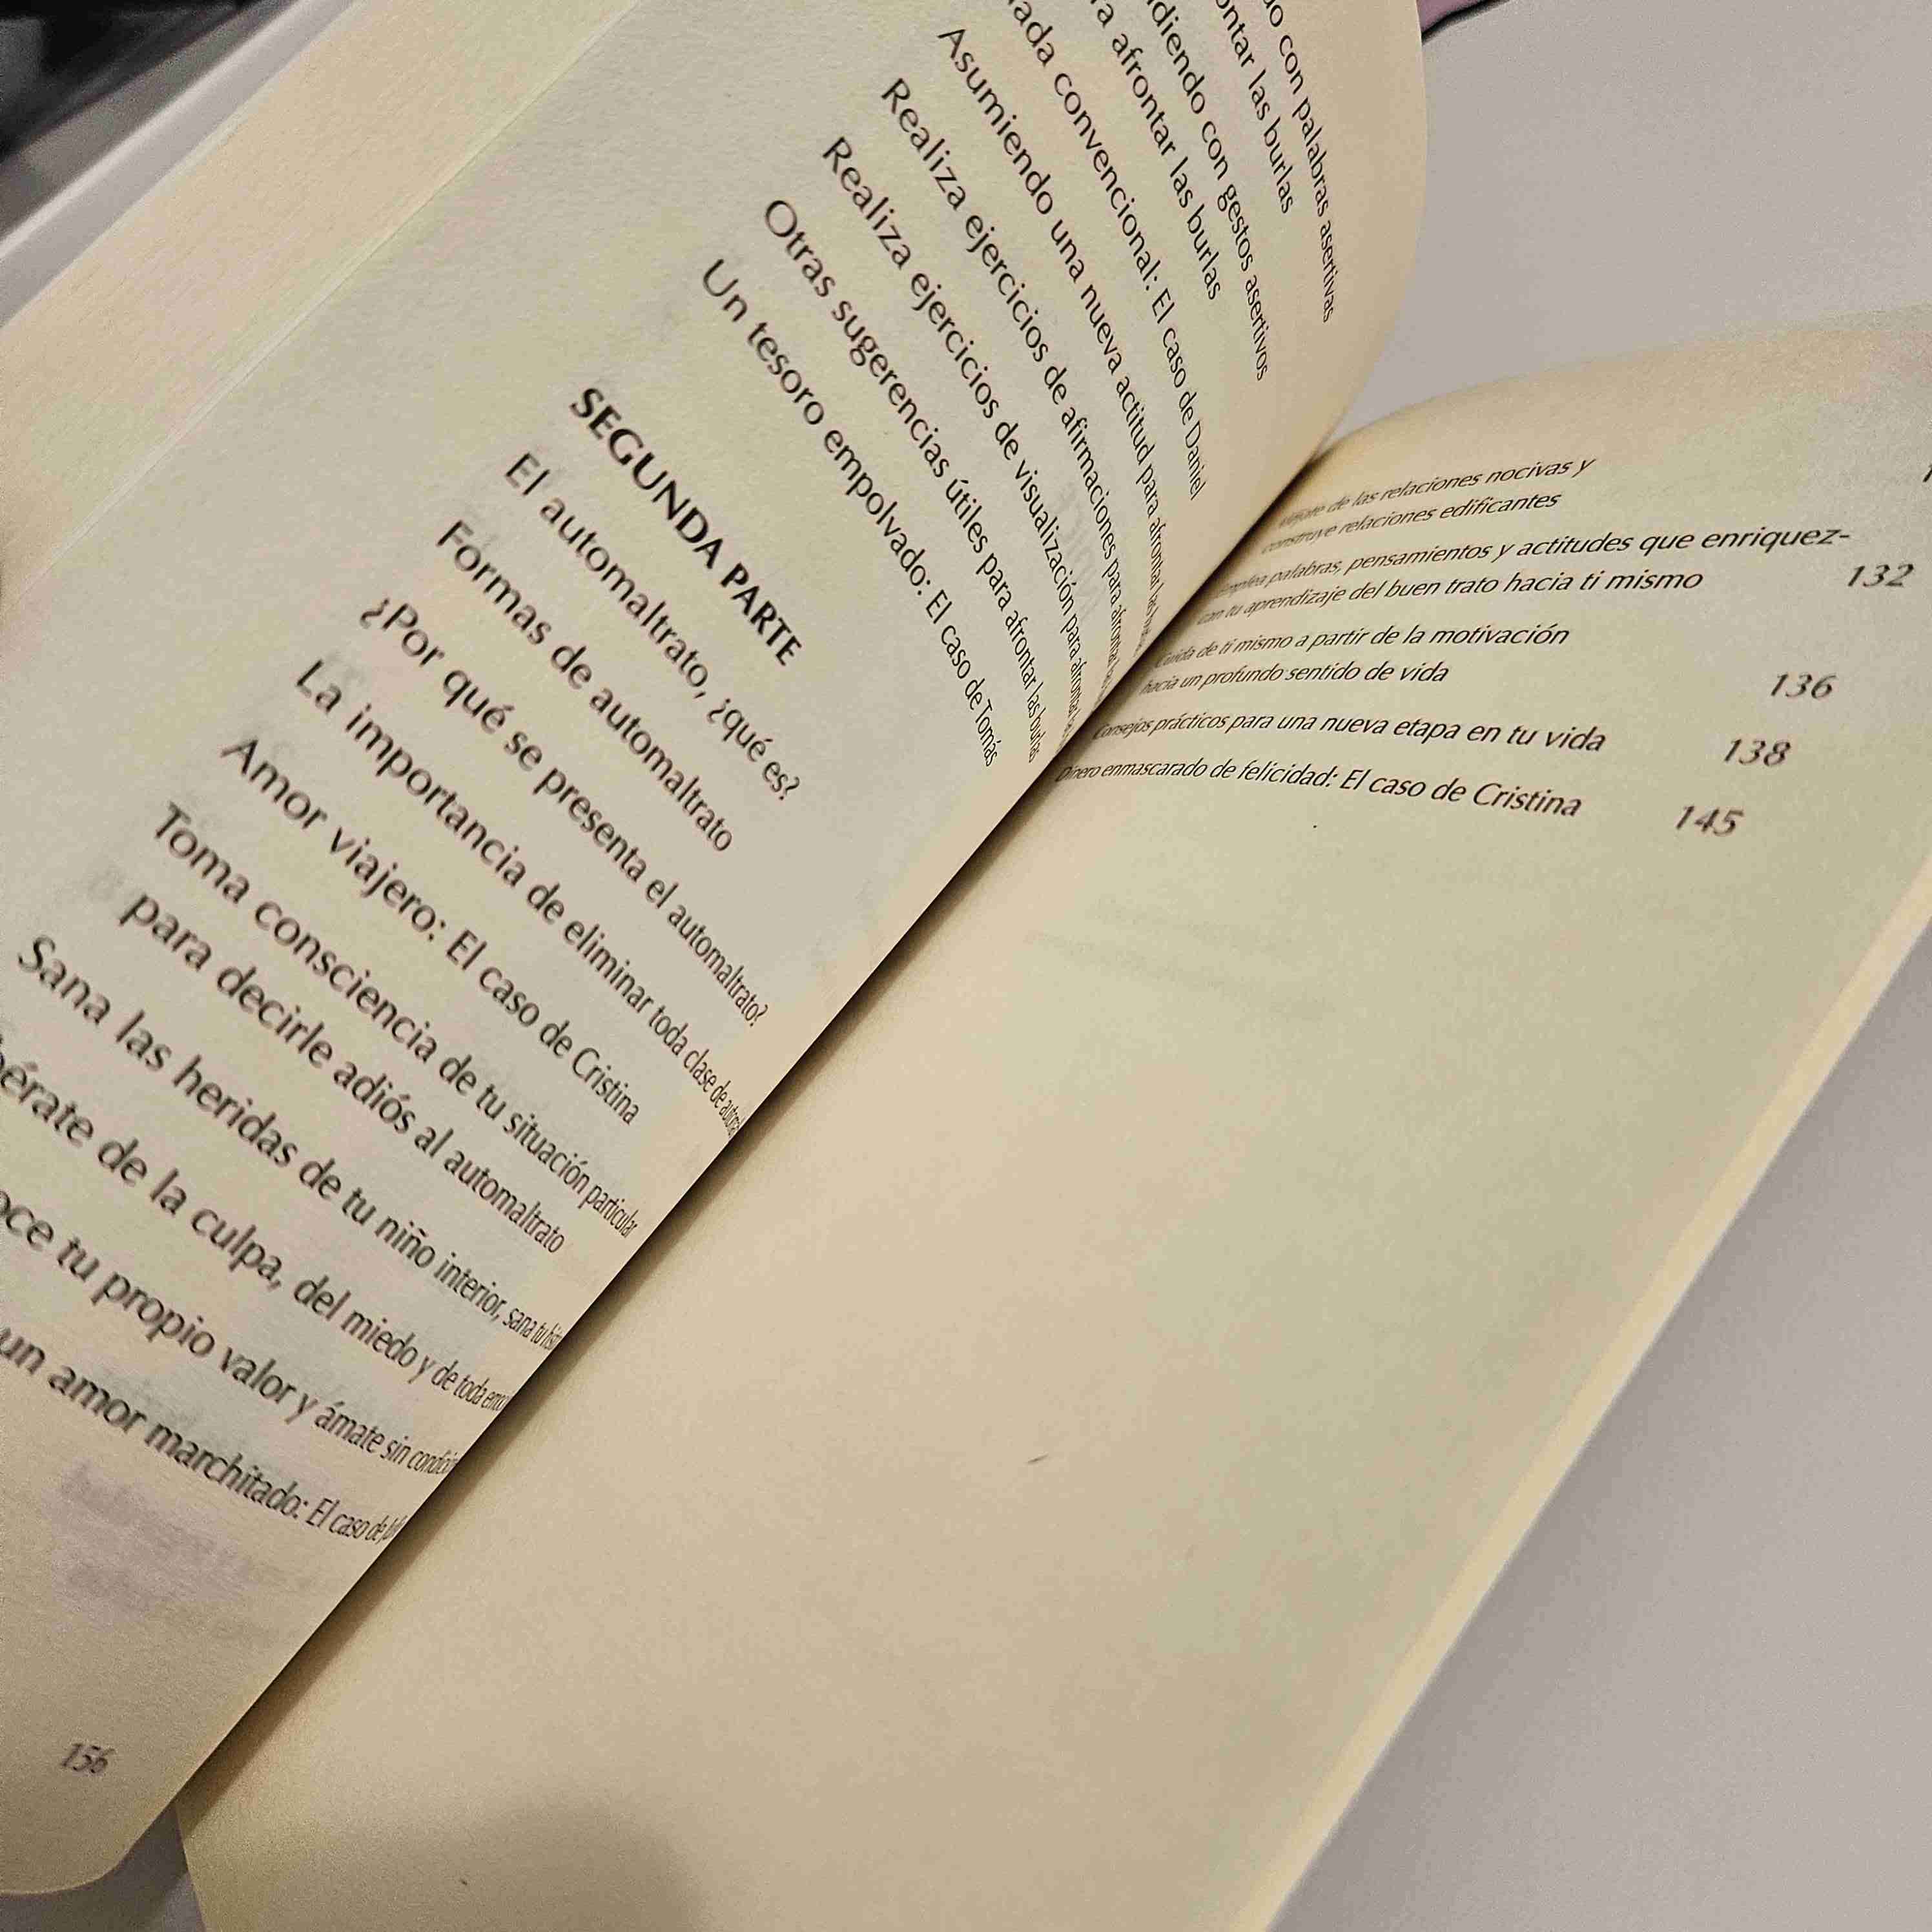 con palabras asertivas
las burlas
con gestos asertivos
afrontar las burlas
convencional: El caso de Daniel
Asumiendo una nueva actitud para afrontar las
Realiza ejercicios de afirmaciones para afrontar
Realiza ejercicios de visualización para afrontar
Otras sugerencias útiles para afrontar las burlas
Un tesoro empolvado: El caso de Tomás
SEGUNDA PARTE
El automaltrato, ¿qué es?
Formas de automaltrato
¿Por qué se presenta el automaltrato?
La importancia de eliminar toda clase de
Amor viajero: El caso de Cristina
Toma consciencia de tu situación particular
para decirle adiós al automaltrato
Sana las heridas de tu niño interior, sana tu
de la culpa, del miedo y de toda
tu propio valor y ámate sin
un amor marchitado: El caso de
156
de las relaciones nocivas y
construye relaciones edificantes
Emplea palabras, pensamientos y actitudes que enriquez-
can tu aprendizaje del buen trato hacia ti mismo 132
Cuida de ti mismo a partir de la motivación
hacia un profundo sentido de vida 136
Consejos prácticos para una nueva etapa en tu vida 138
Dinero enmascarado de felicidad: El caso de Cristina 145